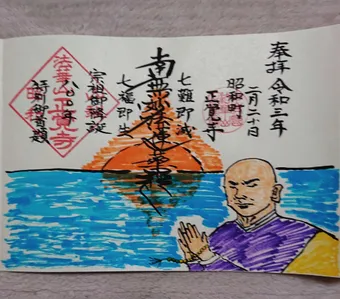 奉拝 令和三年
二月二十日
昭和町
正覚寺
七難即滅
南無妙法蓮華経
七福即生
宗祖御降誕
八〇〇年
特別御首題
法華山
正覚寺